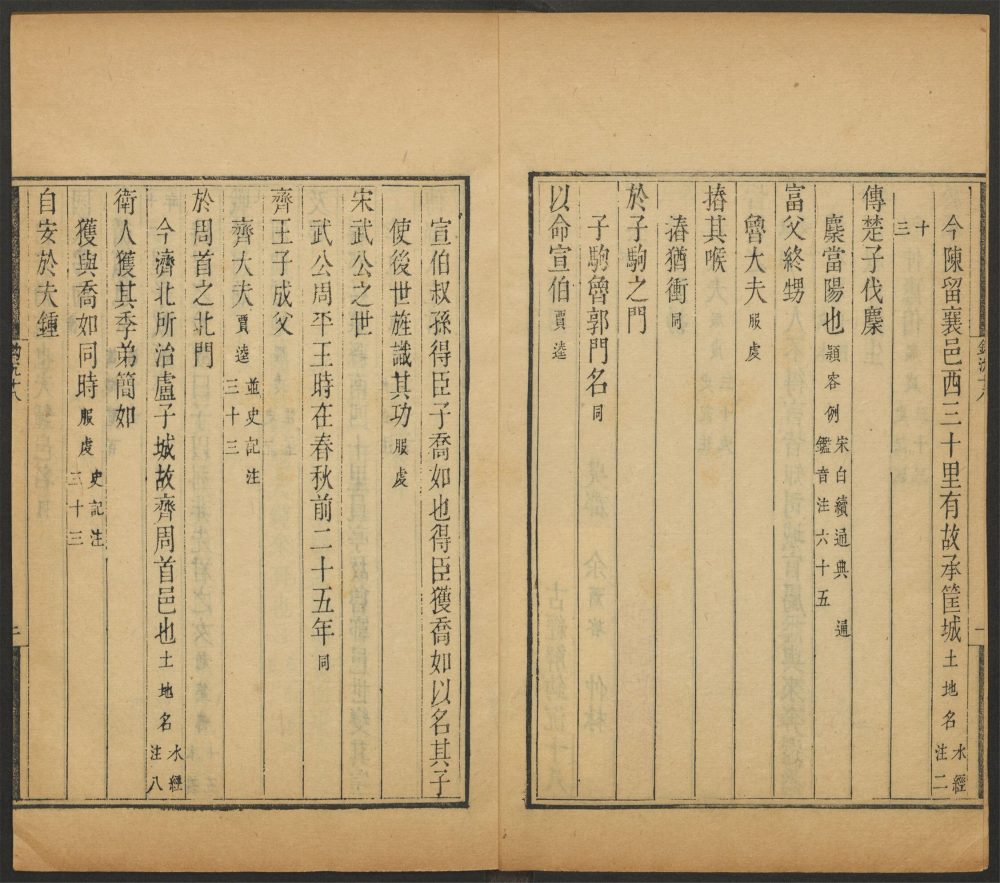 今陳留襄邑西三十里有故承筐城土地名水經注二
十三
傳楚子伐麇
麇當陽也潁容例宋白續通典通鑑音注六十五
富父終甥
魯大夫服虔
摏其喉
摏猶衝同
於子駒之門
子駒魯郭門名同
以命宣伯賈逵
宣伯叔孫得臣子喬如也得臣獲喬如以名其子
使後世旌識其功服虔
宋武公之世
武公周平王時在春秋前二十五年同
齊王子成父
齊大夫賈逵並史記注三十三
於周首之北門
今濟北所治盧子城故齊周首邑也土地名水經注八
衛人獲其季弟簡如
獲與喬如同時服虔史記注三十三
自安於夫鍾